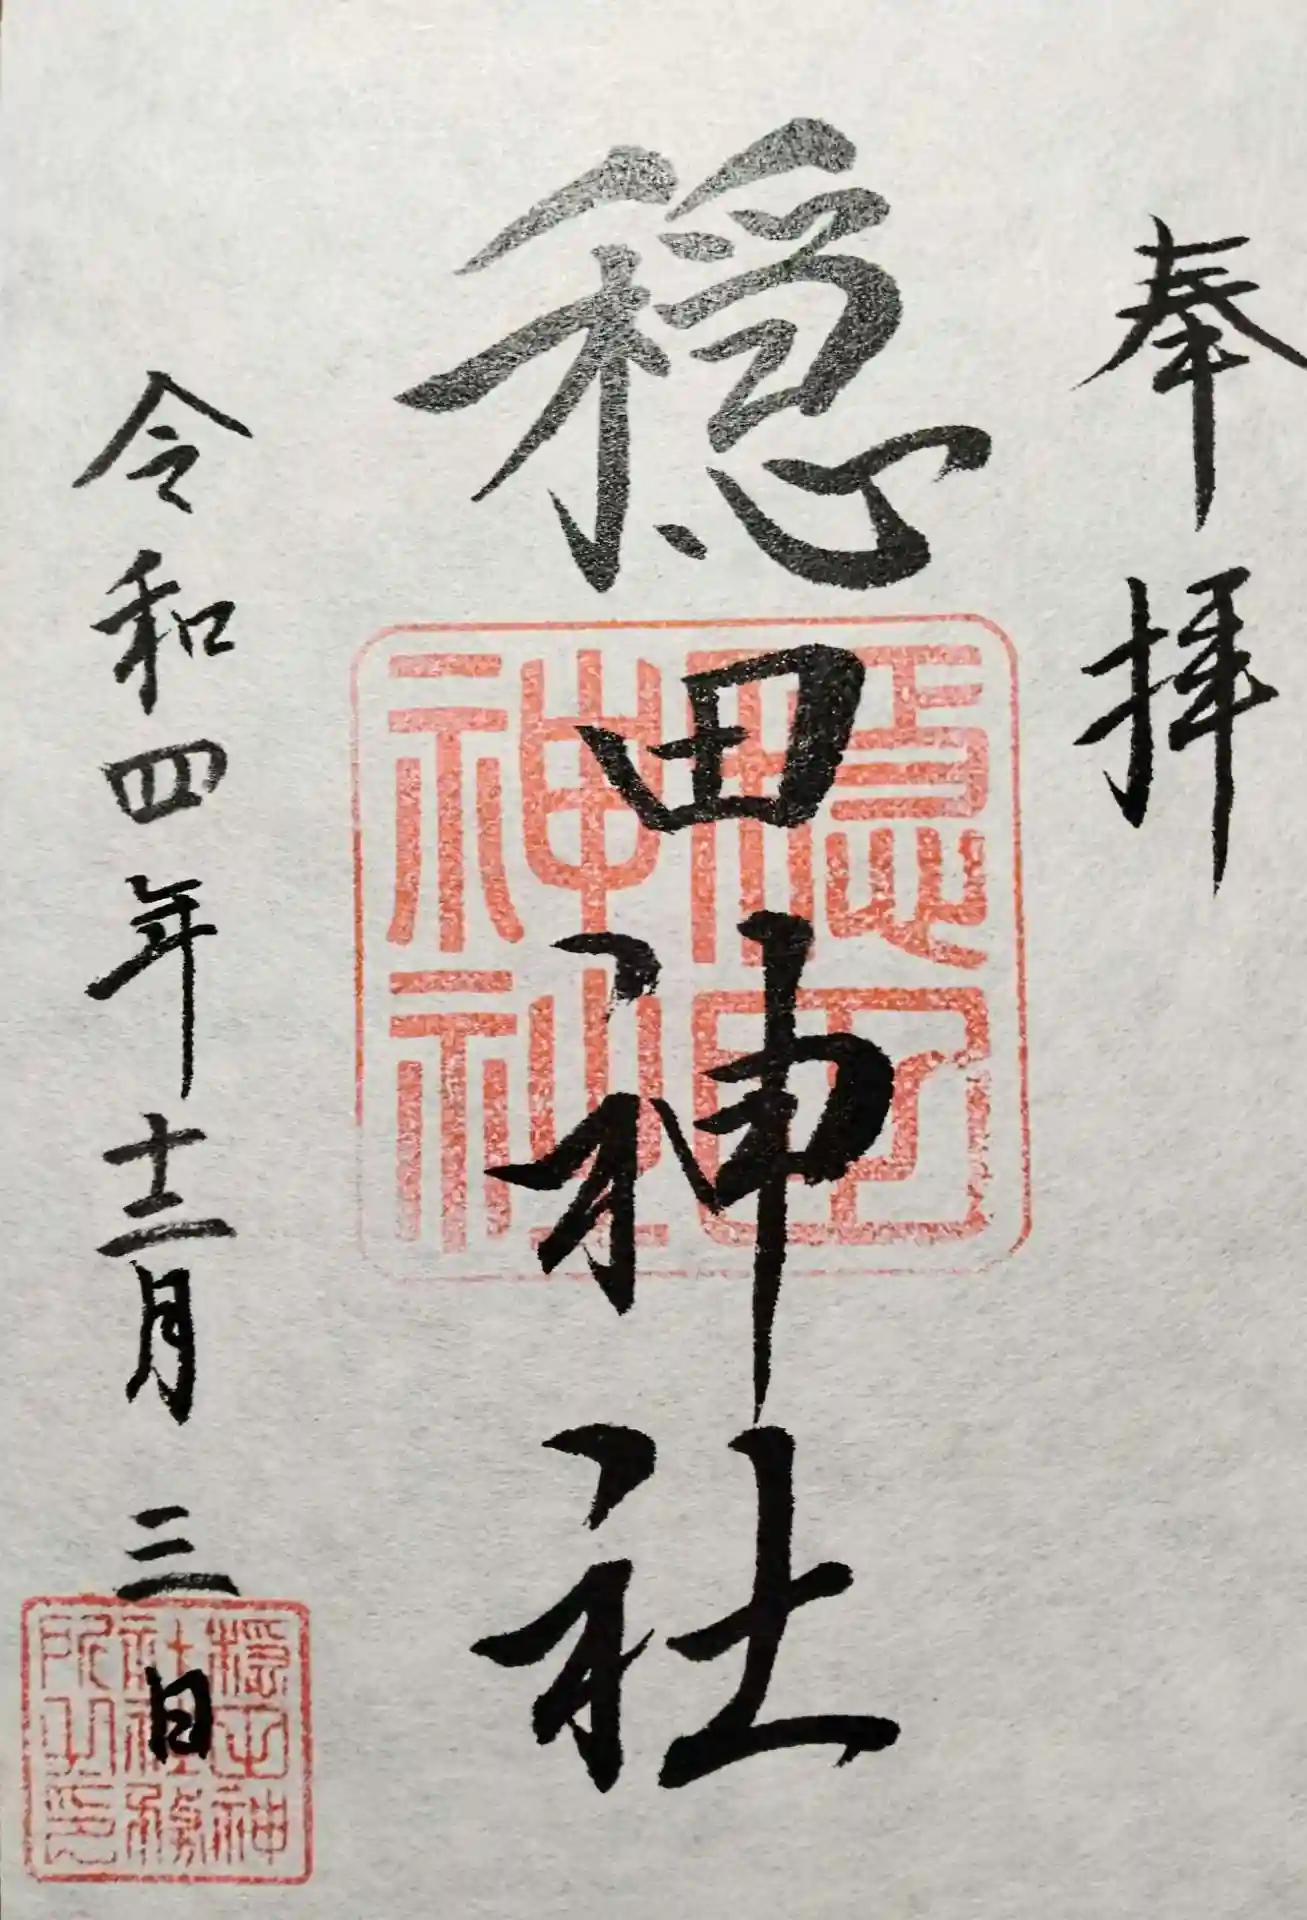 奉拝
穏田神社
令和四年十二月三日
穏田神社
穏田神社社務所之印